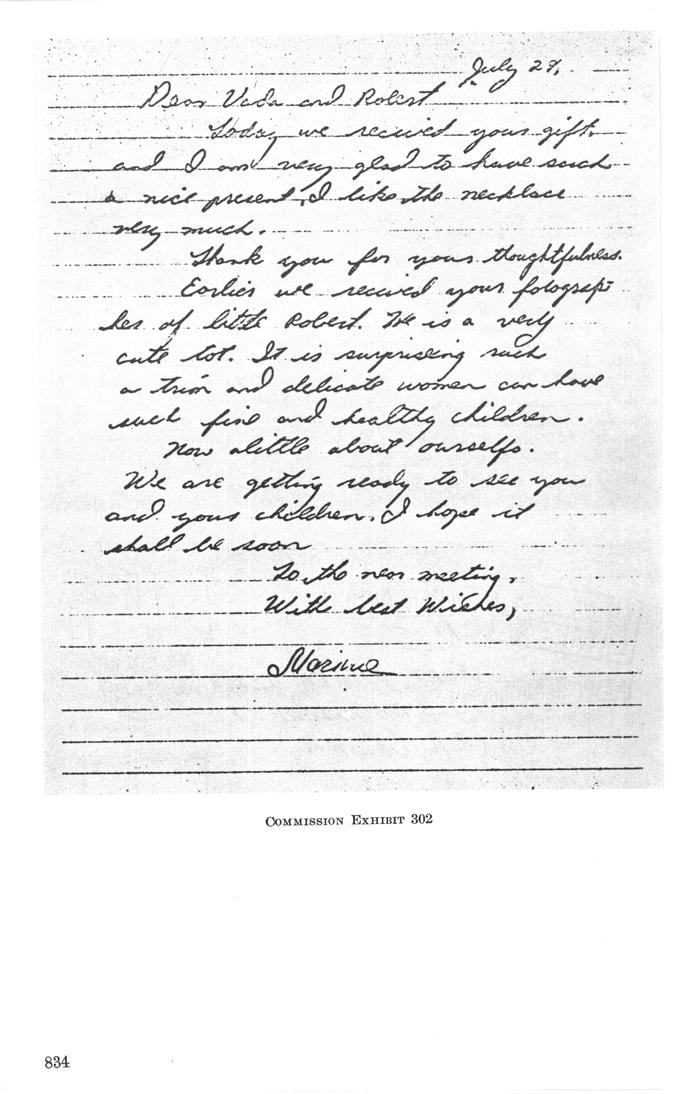 July 29,
Dear Vada and Robert
Today we recived your gift.
and I am very glad to have such
a nice present, I like the necklace
very much.
Thank you for your thoughtfulness.
Earlier we recived your fotograp-
hes of little Robert. He is a very
cute tot. It is surprising such
a trim and delicate women can have
such fine and healthy children.
Now alittle about ourselfs.
We are getting ready to see you
and your children. I hope it
shall be soon
To the near meeting,
With best Wishes,
Marina
COMMISSION EXHIBIT 302
834